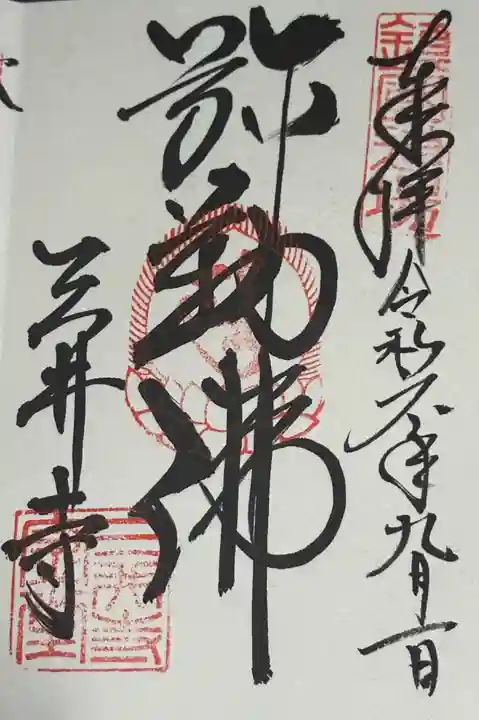 奉拝 令和六年九月一日
彌勒佛
三井寺